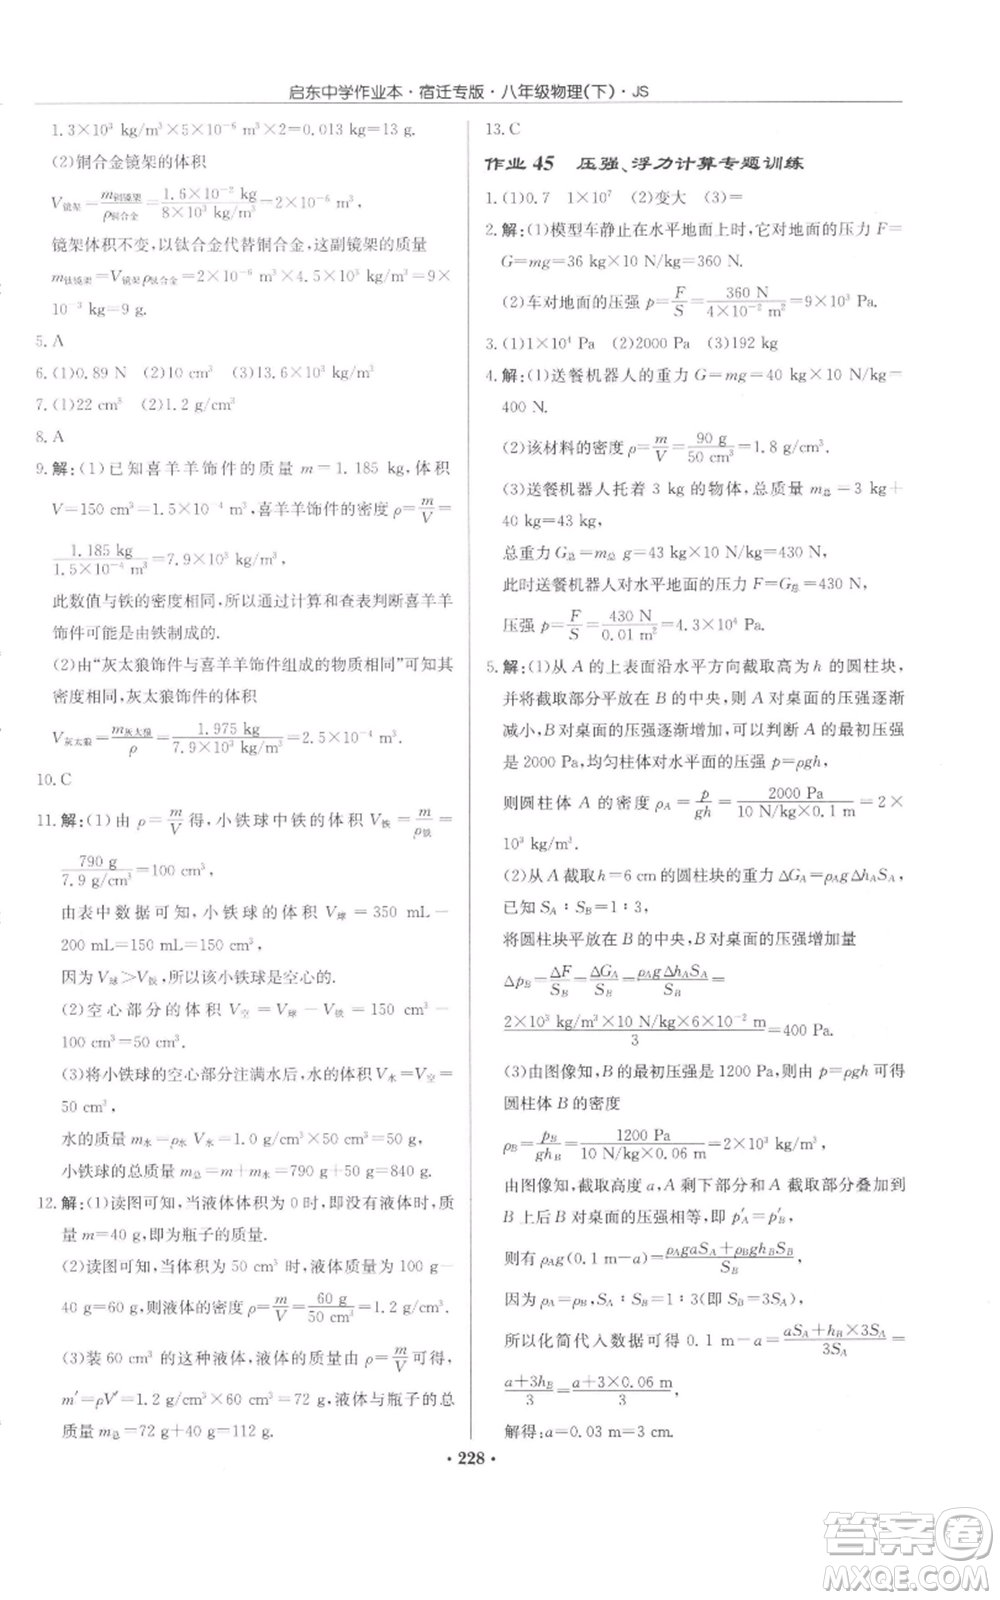 启东中学作业本·宿迁专版·八年级物理(下)·JS
1.3×10³ kg/m³×5×10⁻⁶ m³=0.013 kg=13 g.
(2)铜合金镜架的体积
V镜架=m铜镜架/ρ铜合金=1.6×10⁻² kg/8×10³ kg/m³=2×10⁻⁶ m³.
镜架体积不变,以钛合金代替铜合金,这副镜架的质量
m钛镜架=V镜架ρ钛合金=2×10⁻⁶ m³×4.5×10³ kg/m³=9×
10⁻³ kg=9 g.
5. A
6. (1)0.89 N (2)10 cm³ (3)13.6×10³ kg/m³
7. (1)22 cm³ (2)1.2 g/cm³
8. A
9. 解:(1)已知喜羊羊饰件的质量 m=1.185 kg,体积
V=150 cm³=1.5×10⁻⁴ m³,喜羊羊饰件的密度 ρ=m/V=
1.185 kg/1.5×10⁻⁴ m³=7.9×10³ kg/m³.
此数值与铁的密度相同,所以通过计算和查表判断喜羊羊
饰件可能是由铁制成的.
(2)由“灰太狼饰件与喜羊羊饰件组成的物质相同”可知其
密度相同,灰太狼饰件的体积
V灰太狼=m灰太狼/ρ=1.975 kg/7.9×10³ kg/m³=2.5×10⁻⁴ m³.
10. C
11. 解:(1)由 ρ=m/V 得,小铁球中铁的体积 V铁=m/ρ铁=
790 g/7.9 g/cm³=100 cm³,
由表中数据可知,小铁球的体积 V球=350 mL−
200 mL=150 mL=150 cm³,
因为 V球>V铁,所以该小铁球是空心的.
(2)空心部分的体积 V空=V球−V铁=150 cm³−
100 cm³=50 cm³.
(3)将小铁球的空心部分注满水后,水的体积 V水=V空=
50 cm³,
水的质量 m水=ρ水V水=1.0 g/cm³×50 cm³=50 g,
小铁球的总质量 m总=m+m水=790 g+50 g=840 g.
12. 解:(1)读图可知,当液体体积为 0 时,即没有液体时,质量
m=40 g,即为瓶子的质量.
(2)读图可知,当体积为 50 cm³ 时,液体的质量为 100 g−
40 g=60 g,则液体的密度 ρ=m/V=60 g/50 cm³=1.2 g/cm³.
(3)装 60 cm³ 的这种液体,液体的质量由 ρ=m/V可得,
m′=ρV′=1.2 g/cm³×60 cm³=72 g,液体与瓶子的总
质量 m总=72 g+40 g=112 g.
13. C
作业 45 压强、浮力计算专题训练
1. (1)0.7 1×10⁷ (2)变大 (3)=
2. 解:(1)模型车静止在水平地面上时,它对地面的压力 F=
G=mg=36 kg×10 N/kg=360 N.
(2)车对地面的压强 p=F/S=360 N/4×10⁻² m²=9×10³ Pa.
3. (1)1×10⁴ Pa (2)2000 Pa (3)192 kg
4. 解:(1)送餐机器人的重力 G=mg=40 kg×10 N/kg=
400 N.
(2)该材料的密度 ρ=m/V=90 g/50 cm³=1.8 g/cm³.
(3)送餐机器人托着 3 kg 的物体,总质量 m总=3 kg+
40 kg=43 kg,
总重力 G总=m总g=43 kg×10 N/kg=430 N,
此时送餐机器人对水平地面的压力 F=G总=430 N,
压强 p=F/S=430 N/0.01 m²=4.3×10⁴ Pa.
5. 解:(1)从 A 的上表面沿水平方向截取高为 h 的圆柱块,
并将截取部分平放在 B 的中央,则 A 对桌面的压强逐渐
减小,B 对桌面的压强逐渐增大,可以判断 A 的最初压强
是 2000 Pa,均匀柱体对水平面的压强 p=ρgh,
则圆柱体 A 的密度 ρA=p/gh=2000 Pa/10 N/kg×0.1 m=2×
10³ kg/m³.
(2)从A 截取h=6 cm的圆柱块的重力 ΔGA=ρAgΔhASA,
已知 SA∶SB=1∶3,
将圆柱块平放在 B 的中央,B 对桌面的压强增加量
ΔpB=ΔF/SB=ΔGA/SB=ρAgΔhASA/SB=
2×10³ kg/m³×10 N/kg×6×10⁻² m/3=400 Pa.
(3)由图像知,B 的最初压强是 1200 Pa,则由 p=ρgh 可得
圆柱体 B 的密度
ρB=pB/ghB=1200 Pa/10 N/kg×0.06 m=2×10³ kg/m³,
由图像知,截取高度 a,A 剩下部分和 A 截取部分叠加在
B 上后 B 对桌面的压强相等,即 p′A=p′B,
则有 ρAg(0.1 m−a)=ρAgaSA+ρBghBSB/SB,
因为 ρA=ρB,SA∶SB=1∶3(即 SB=3SA),
所以化简代入数据可得 0.1 m−a=aSA+hB×3SA/3SA=
a+3hB/3=a+3×0.06 m/3,
解得:a=0.03 m=3 cm
·228·
答案圈
MXQE.COM